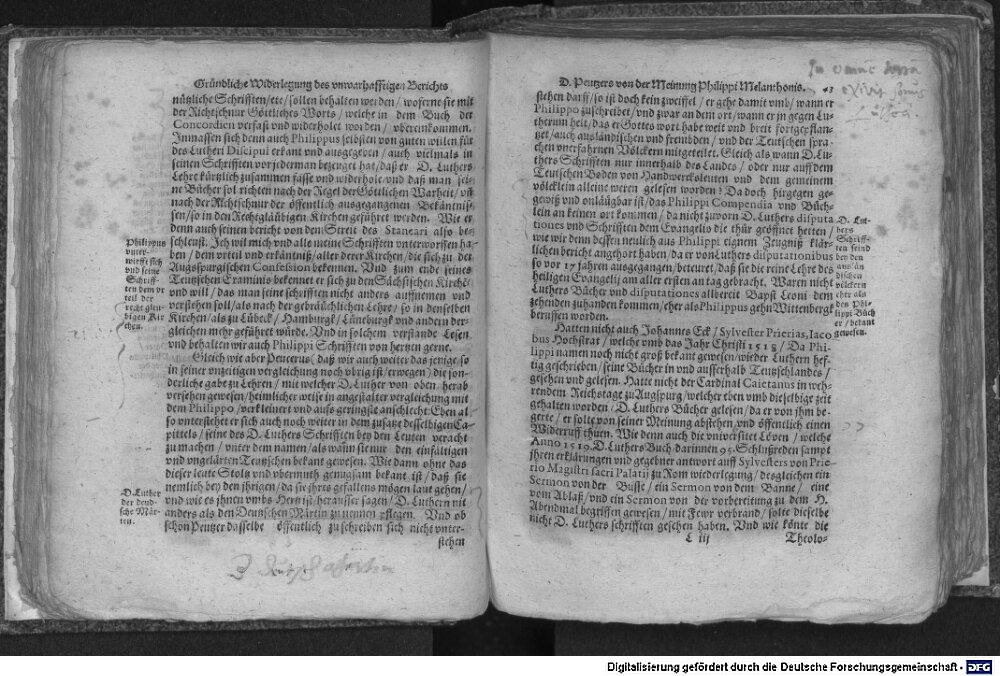 Gründliche Widerlegung des vnwarhafftigen Berichts
nützliche Schrifften/etc/sollen behalten werden/woferne sie mit
der Richtschnur Göttliches Worts/welche in dem Buch der
Concordien verfast vnd widerholet worden/vbereinkommen.
Inmassen sich denn auch Philippus selbsten von guten willen für
des Lutheri Discipul erkant vnd ausgegeben/auch vielmals in
seinen Schrifften vor jederman bezeuget hat/daß er D. Luthers
Lehre kürtzlich zusammen fasse vnd widerhole/vnd daß man sei-
ne Bücher sol richten nach der Regel der Göttlichen Warheit/vñ
nach der Richtschnur der öffentlich ausgegangenen Bekäntniß-
sen/so in den Rechtgläubigen Kirchen geführet werden. Wie er
denn auch seinen bericht von dem Streit des Stancari also be-
schleust. Ich wil mich vnd alle meine Schrifften vnterworffen ha-
ben/dem vrteil vnd erkäntniß/aller derer Kirchen/die sich zu der
Augspurgischen Confession bekennen. Vnd zum ende seines
Teutschen Examinis bekennet er sich zu den Sächsischen Kirchẽ
vnd will/das man seine schrifften nicht anders auffnemen vnd
verstehen soll/als nach der gebräüchlichen Lehre/so in denselben
Kirchen/als zu Lübeck/Hamburgk/Lüneburgk vnd andern der-
gleichen mehr geführet würde. Vnd in solchem verstande Lesen
vnd behalten wir auch Philippi Schrifften von hertzen gerne.
Gleich wie aber Peucerus (daß wir auch weiter das jenige/so
in seiner vnzeitigen vergleichung noch vbrig ist/erwegen) die son-
derliche gabe zu Lehren/mit welcher D. Luther von oben herab
versehen gewesen/heimlicher weise in angestalter vergleichung mit
dem Philippo/verkleinert vnd auffs geringste anschlecht: Eben al-
so vnterstehet er sich auch noch weiter in dem zusatze desselbigen Ca-
pittels/seine des D. Luthers Schrifften bey den Leuten veracht
zu machen/vnter dem namen/als wann sie nur den einfältigen
vnd vngelärten Teutschen bekant gewesen. Wie dann ohne das
dieser leute Stoltz vnd vbermuth genugsam bekant ist/daß sie
nemlich bey den ihrigen/da sie jhres gefallens mögen laut gehen/
vnd wie es jhnen vmbs Hertz ist/herausser sagen/D. Luthern nit
anders als den Deutschen Märtin zu nennen pflegen. Vnd ob
schon Peutzer dasselbe öffentlich zu schreiben sich nicht vnter-
stehen
Philippus
vnter-
wirfft sich
vnd seine
Schriff-
ten dem vr
teil der
recht gleu-
bigen Kir
chen.
D. Luther
der deud-
sche Mär-
ten.
D. Peutzers von der Meinung Philippi Melanthonis. 43
stehen darff/so ist doch kein zweiffel/er gehe damit vmb/wann er
Philippo zuschreibet/vnd zwar an dem ort/wann er jn gegen Lu-
therum helt/das er Gottes wort habe weit vnd breit fortgepflan-
tzet/auch ausländischen vnd frembden/vnd der Teutschen spra-
chen vnerfahrnen Völckern mitgeteilet. Gleich als wann D. Lu-
thers Schrifften nur innerhalb des Landes/oder nur auff dem
Teutschen Boden von Handwercksleuten vnd dem gemeinem
völcklein alleine weren gelesen worden? Da doch hirgegen ge-
wiß vnd onläugbar ist/das Philippi Compendia vnd Büch-
lein an keinen ort kommen/da nicht zuvorn D. Luthers disputa
tiones vnd Schrifften dem Evangelio die thür geöffnet hetten/
wie wir denn dessen neulich aus Philippi eignem Zeugniß klär-
lichen bericht angehort haben/da er von Luthers disputationibus
so vor 17 jahren ausgegangen/beteuret/daß sie die reine Lehre des
heiligen Evangelij am aller ersten an tag gebracht. Waren nicht
Luthers Bücher vnd disputationes allbereit Bapst Leoni dem
zehenden zuhanden kommen/eher als Philippus gehn Wittenberg
beruffen worden.
Hatten nicht auch Johannes Eck/Sylvester Prierias, Iaco
bus Hochstrat/welche vmb das Jahr Christi 1518/Da Phi-
lippi namen noch nicht groß bekant gewesen/wieder Luthern hef-
tig geschrieben/seine Bücher in vnd ausserhalb Teutschlandes/
gesehen vnd gelesen. Hatte nicht der Cardinal Caietanus in weh-
rendem Reichstage zu Augspurg/welcher eben vmb dieselbige zeit
gehalten worden/D. Luthers Bücher gelesen/da er von jhm be-
gerte/er solte von seiner Meinung abstehen vnd öffentlich einen
Widerruff thuen. Wie denn auch die vniversitet Löven/welche
Anno 1519. D. Luthers Buch darinnen 95. Schlußreden sampt
jhren erklärungen vnd gegebner antwort auff Sylvesters von Prie-
rio Magistri sacri Palatij zu Rom wiederlegung/desgleichen ein
Sermon von der Busse/ein Sermon von dem Banne/eine
vom Ablaß/vnd ein Sermon von der vorbereitung zu dem H.
Abendmal begriffen gewesen/mit Fewr verbrand/solte dieselbe
nicht D. Luthers schrifften gesehen haben. Vnd wie könte die
L iij Theolo-
D. Lut-
hers
Schriff-
ten seind
bey den
auslän
dischen
völckern
eher als
den Phi-
lippi Büch
er/bekant
gewesen.
Digitalisierung gefördert durch die Deutsche Forschungsgemeinschaft - DFG